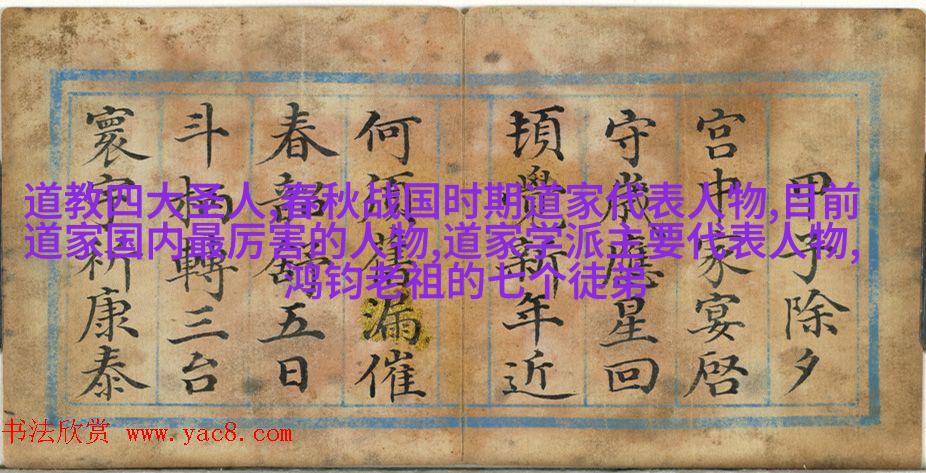 甲子除夕
宮中家宴啓
守歲應星回
頓覺新年近
何須舊漏催
春韶五日
斗柄轉三台
寰宇祈康泰
道教四大圣人,春秋战国时期道家代表人物,目前
道家国内最厉害的人物,道家学派主要代表人物,
鸿钧老祖的七个徒弟
书法欣赏 www.yac8.com